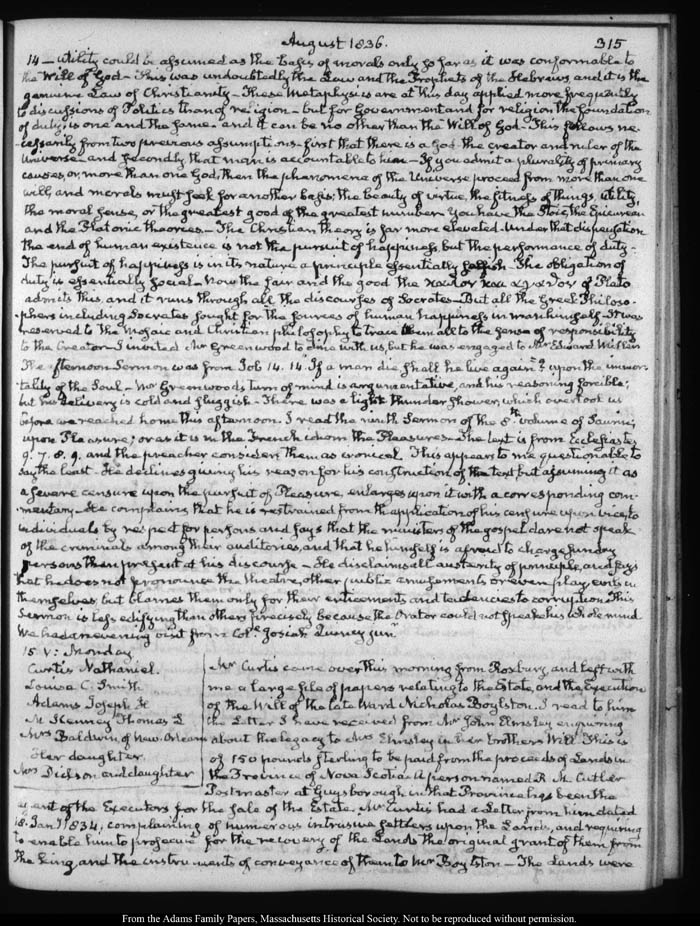 August 1836. 315
14 — Utility could be assumed as the basis of morals only so far as it was conformable to
the Will of God — This was undoubtedly the Law and the Prophets of the Hebrews, and it is the
genuine Law of Christianity — These Metaphysics are at this day applied more frequently
to discussions of Politics than of religion — but for Government and for religion the foundation
of duty, is one and the same — and it can be no other than the Will of God — This follows ne-
cessarily from two previous assumptions — first that there is a God the creator and ruler of the
Universe — and secondly that man is accountable to him — If you admit a plurality of primary
causes, or more than one God, then the phaenomena of the Universe proceed from more than one
will, and morals must seek for another basis; the beauty of virtue, the fitness of things, utility,
the moral sense, or the greatest good of the greatest number. You have the Stoic, the Epicurean
and the Platonic theories — The Christian theory is far more elevated. Under that dispensation
the end of human existence is not the pursuit of happiness, but the performance of duty —
The pursuit of happiness is in its nature a principle essentially selfish — The obligation of
duty is essentially social — Now the fair and the good the καλον και αγαθον of Plato
admits this, and it runs through all the discourses of Socrates — But all the Greek Philoso-
phers including Socrates sought for the sources of human happiness in man himself — It was
reserved to the Mosaic and Christian philosophy to trace them all to the sense of responsibility
to the Creator — I invited Mr Greenwood to dine with us, but he was engaged to Mr Edward Miller
The afternoon Sermon was from Job 14. 14. If a man die, shall he live again? upon the immor-
tality of the Soul — Mr Greenwood's turn of mind is argumentative, and his reasoning forcible;
but his delivery is cold and sluggish — There was a light thunder shower, which overtook us
before we reached home this afternoon. I read the ninth Sermon of the 8th volume of Saurin;
upon Pleasure; or as it is in the French upon the Pleasures — The text is from Ecclesiastes
9. 7. 8. 9. and the preacher considers them as ironical. This appears to me questionable to
say the least. He declines giving his reason for his construction of the text, but assuming it as
a severe censure upon the pursuit of Pleasure, enlarges upon it with a corresponding com-
mentary — He complains that he is restrained from the application of his censure upon vice, to
individuals by respect for persons and says that the ministers of the gospel dare not speak
of the criminals among their auditories, and that he himself is afraid to charge sundry
persons then present at his discourse — He disclaims all austerity of principle, and says
that he does not pronounce the theatre, other public amusements or even play evils in
themselves, but blames them only for their enticements and tendencies to corruption. This
Sermon is less edifying than others precisely because the Orator could not speak his whole mind
We had an evening visit from Col. Josiah Quincy jun.
15 V: Monday
Curtis Nathaniel.
Louisa C. Smith
Adams Joseph H
M Kenney Thomas L
Mrs Baldwin of New Orleans
Her daughter
Mrs Dickson and daughter
Mr Curtis came over this morning from Roxbury and left with
me a large file of papers relating to the Estate, and the Execution
of the Will of the late Ward Nicholas Boylston. I read to him
the Letter I have received from Mr John Elmsley enquiring
about the legacy to Mrs Elmsley in her brother's Will. This is
of 150 pounds sterling to be paid from the proceeds of Lands in
the Province of Nova Scotia. A person named R. M. Cutler
Postmaster at Guysborough in that Province has been the
agent of the Executors for the sale of the Estate. Mr Curtis had a Letter from him dated
18. Jany 1834, complaining of numerous intrusive settlers upon the Lands, and requiring
to enable him to prosecute for the recovery of the Lands the original grant of them from
the King, and the instruments of conveyance of them to Mr Boylston — The Lands were
From the Adams Family Papers, Massachusetts Historical Society. Not to be reproduced without permission.